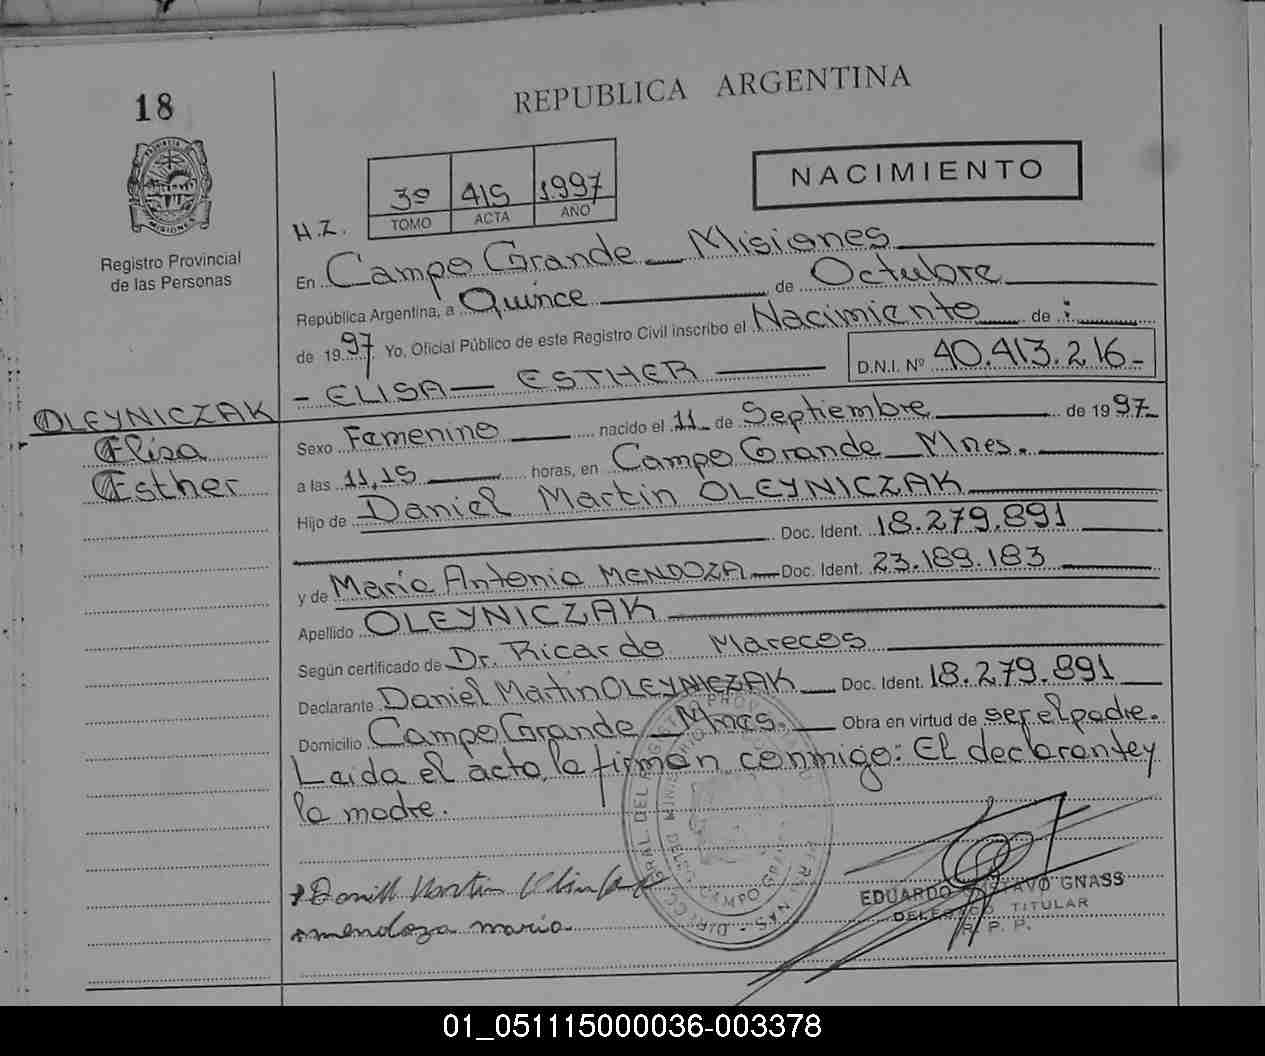 18
REPUBLICA ARGENTINA
NACIMIENTO
3º 415 1.997
TOMO ACTA AÑO
H.Z.
PROVINCIA DE
MISIONES
Registro Provincial
de las Personas
En Campo Grande Misiones
República Argentina, a Quince de Octubre
de 1997. Yo, Oficial Público de este Registro Civil inscribo el Nacimiento de :
- ELISA — ESTHER
D.N.I. Nº 40.413.216-
OLEYNICZAK
Elisa
Esther
Sexo Femenino nacido el 11 de Septiembre de 1997-
a las 11,15 horas, en Campo Grande Mnes.
Hijo de Daniel Martin OLEYNICZAK
Doc. Ident. 18.279.891
y de María Antonia MENDOZA Doc. Ident. 23.189.183
Apellido OLEYNICZAK
Según certificado de Dr. Ricardo Marecos
Declarante Daniel Martin OLEYNICZAK Doc. Ident. 18.279.891
Domicilio Campo Grande Mnes. Obra en virtud de ser el padre.
Leida el acta, la firman conmigo: El declarante y
la madre.
mendoza maria
EDUARDO GUSTAVO GNASS
DELEGADO TITULAR
R. P. P.
01_051115000036-003378